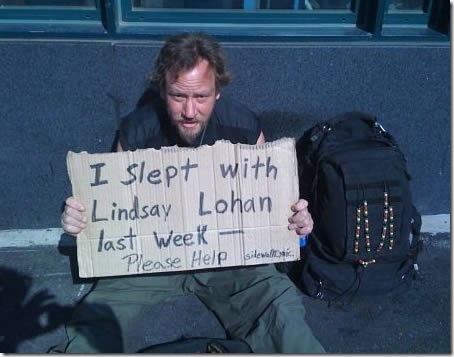 I slept with
Lindsay Lohan
last week —
Please Help